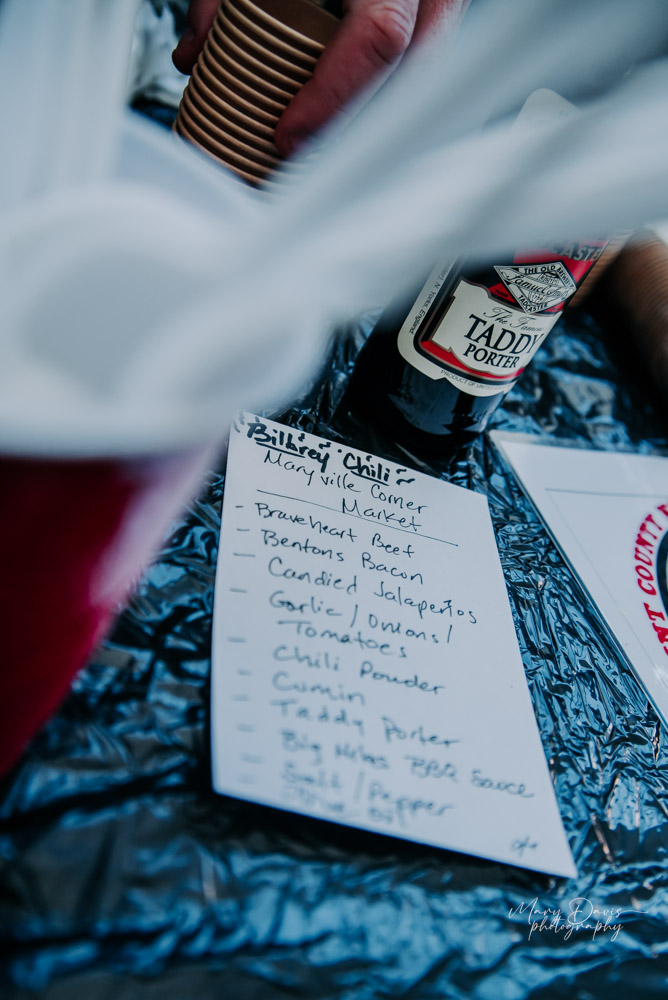 THE OLD BREWERY
Samuel Smith
TADCASTER
N. Yorks, England
The Famous
TADDY
PORTER
PRODUCT OF
Bilbrey Chili
Maryville Corner
Market
- Braveheart Beef
- Bentons Bacon
- Candied Jalapeños
- Garlic / Onions /
Tomatoes
- Chili Powder
- Cumin
- Taddy Porter
- BBQ Sauce
- Salt / Pepper
NT COUNTY
Mary Davis
photography